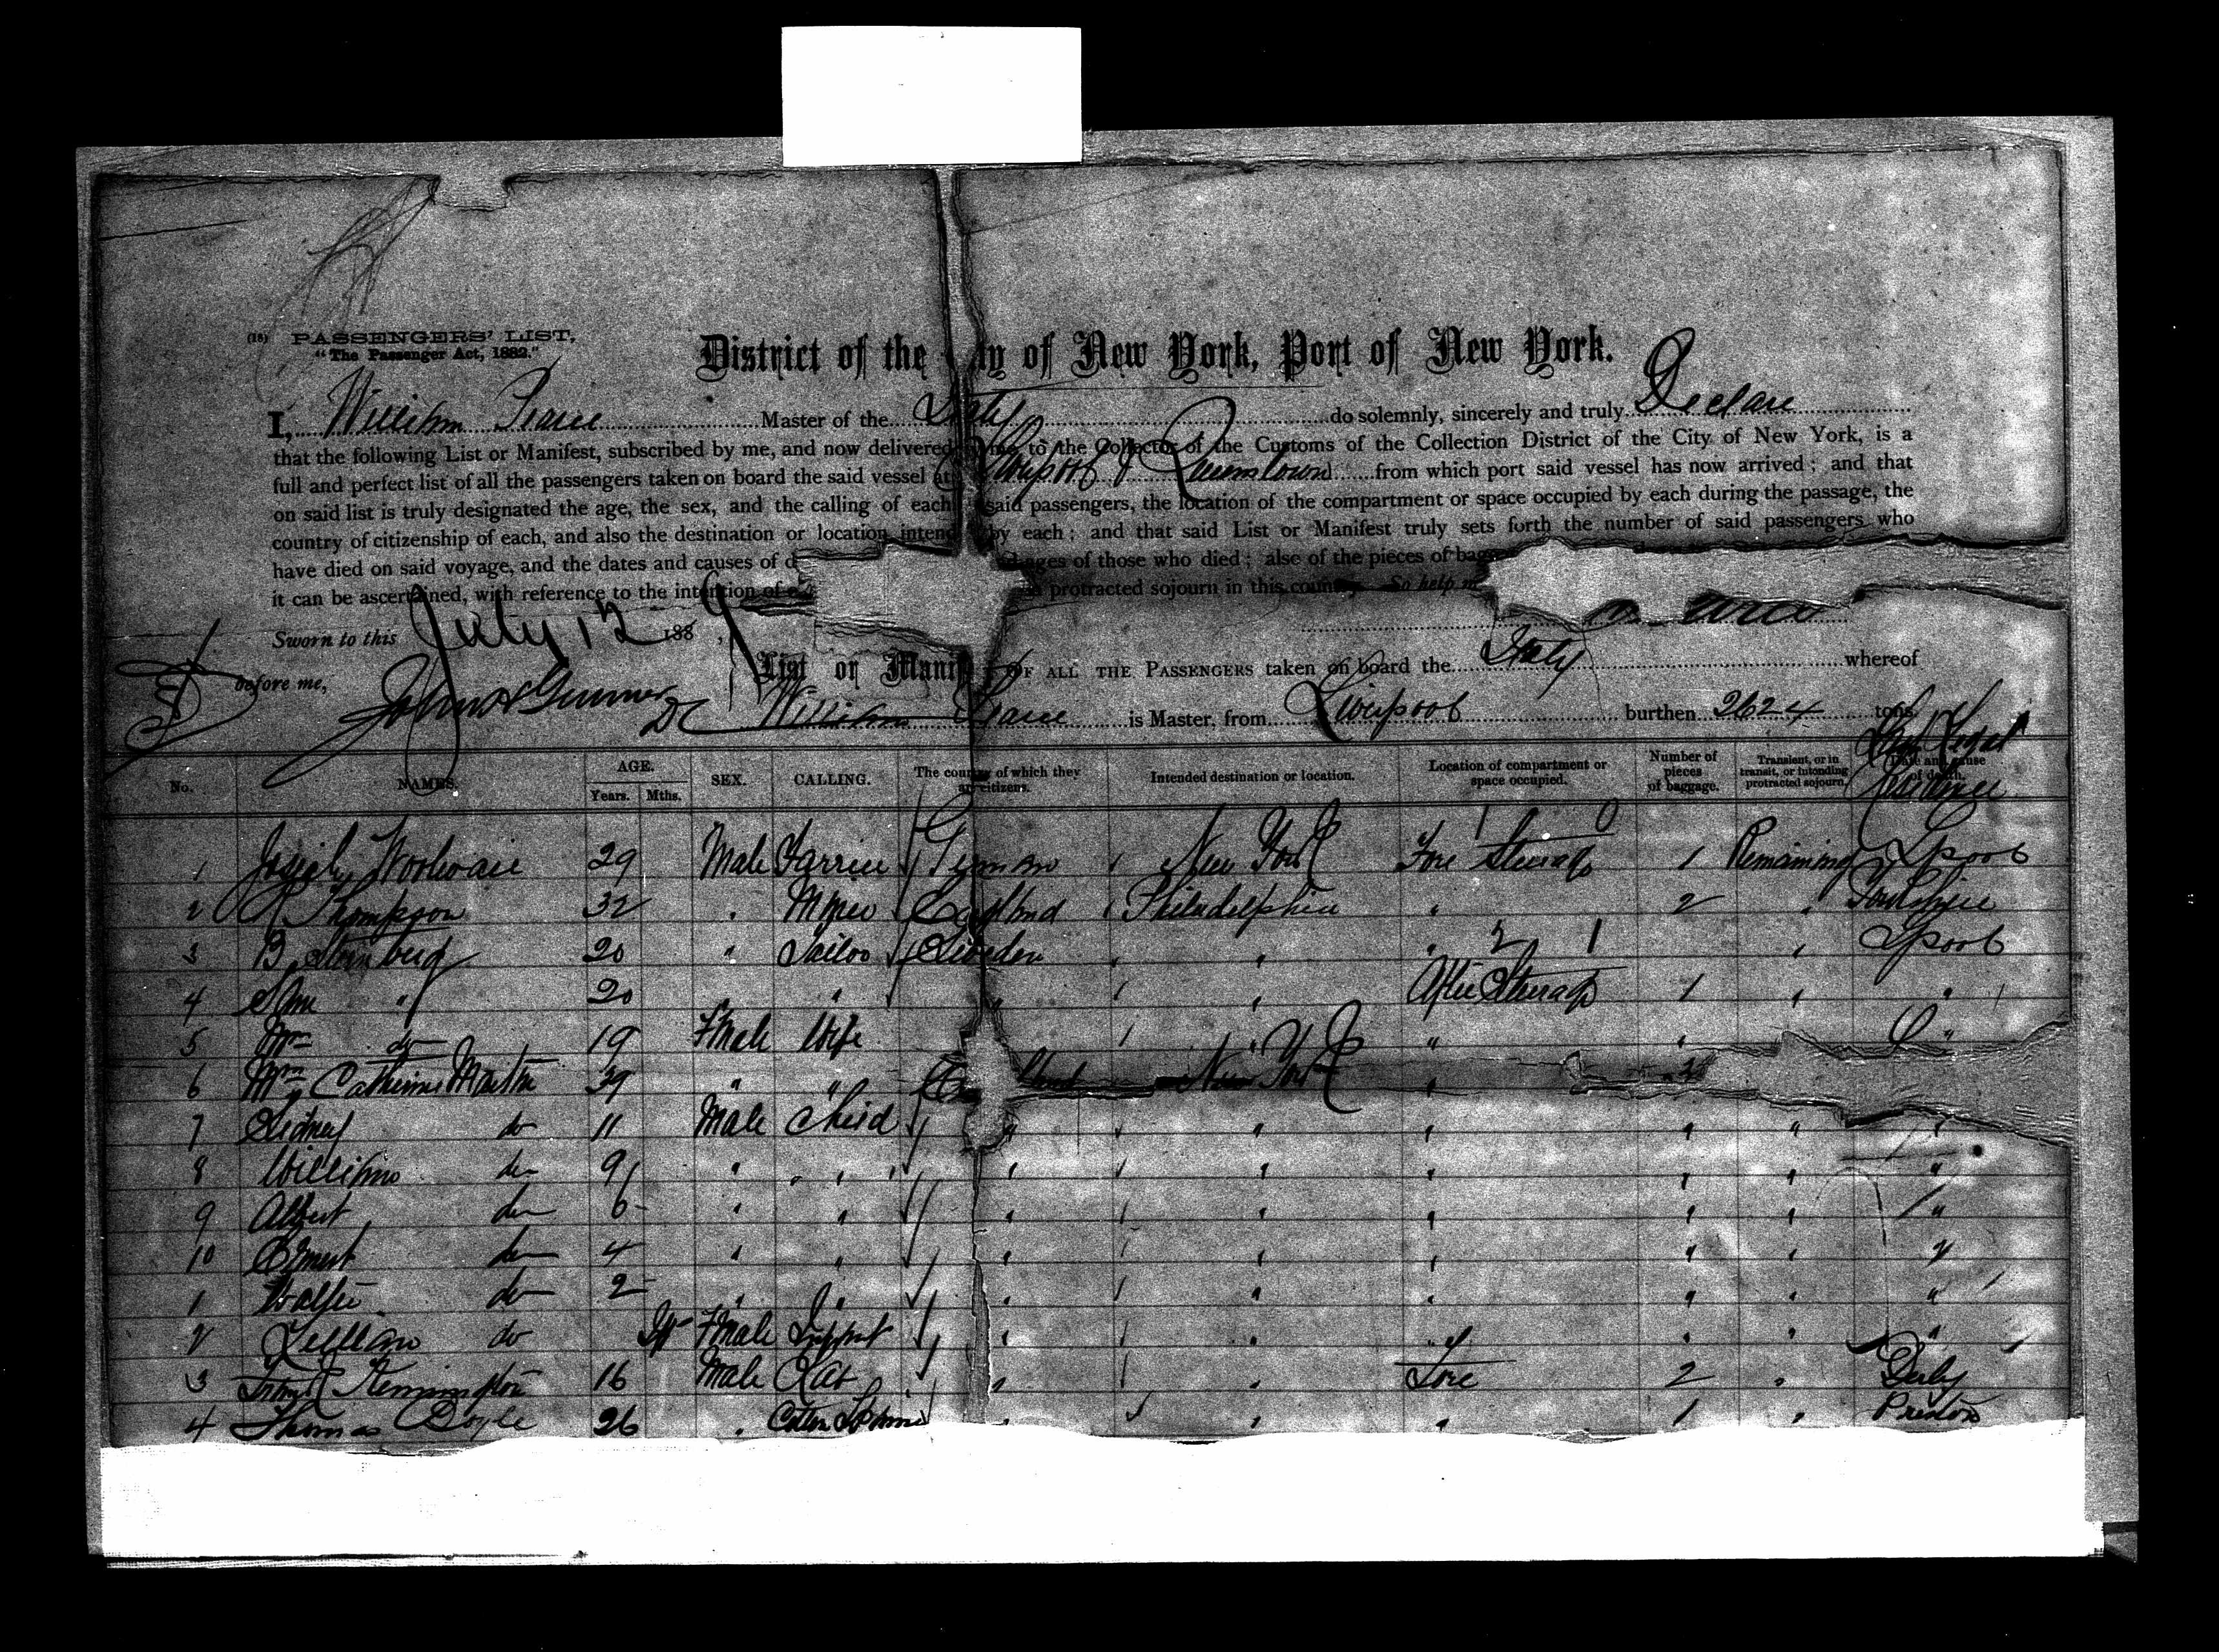 (18) PASSENGERS' LIST,
"The Passenger Act, 1882."
District of the City of New York, Port of New York.
I, William Pearce Master of the Italy do solemnly, sincerely and truly Declare
that the following List or Manifest, subscribed by me, and now delivered me to the Collector of the Customs of the Collection District of the City of New York, is a
full and perfect list of all the passengers taken on board the said vessel at Liverpool & Queenstown from which port said vessel has now arrived; and that
on said list is truly designated the age, the sex, and the calling of each said passengers, the location of the compartment or space occupied by each during the passage, the
country of citizenship of each, and also the destination or location intend by each; and that said List or Manifest truly sets forth the number of said passengers who
have died on said voyage, and the dates and causes of d ages of those who died; also of the pieces of bag
it can be ascertained, with reference to the intention of protracted sojourn in this country. So help m
Sworn to this July 12 1889,
before me,
List or Manif OF ALL THE PASSENGERS taken on board the Italy whereof
William Pearce is Master, from Liverpool burthen 2624 tons
Last Legal Residence
No. NAMES. AGE. Years. Mths. SEX. CALLING. The country of which they are citizens. Intended destination or location. Location of compartment or space occupied. Number of pieces of baggage. Transient, or in transit, or intending protracted sojourn. Date and cause of death.
1 Joseph 29 Male Farrier German New York Fore Steerage 1 Remaining Lpool
2 Thompson 32 " Miner England Philadelphia " 2 "
3 B. Sternberg 20 " Sailor Sweden " " " " Lpool
4 " 20 " " " " After Steerage 1 " "
5 Mrs do 19 Fmale Wife " " " " "
6 Mrs Catherine Martin 39 " " New York "
7 Sidney do 11 Male Child " " " " " "
8 William do 9 " " " " " " " "
9 Albert do 6 " " " " " " " "
10 Ernest do 4 " " " " " " " "
1 Walter do 2 " " " " " " " "
2 Lillian do Fmale Infant " " " " " "
3 Remington 16 Male Lab " " Fore 2 " Derby
4 Thomas Doyle 26 " Cotton Spinner " " " 1 " Preston